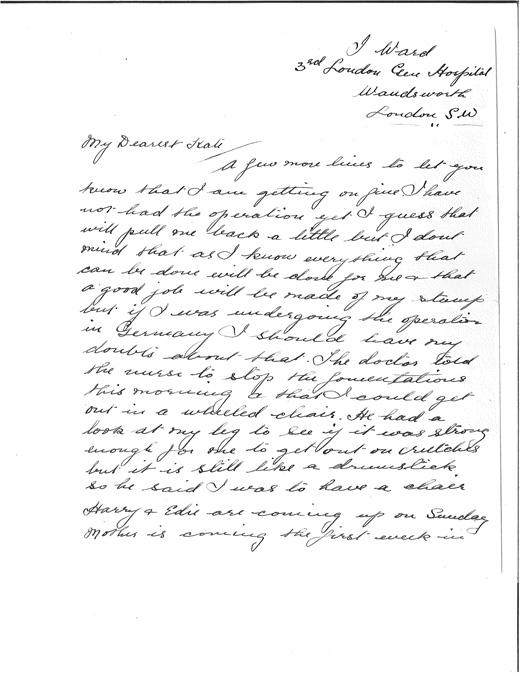 I Ward
3rd London Gen Hospital
Wandsworth
London SW
My Dearest Kate
A few more lines to let you
know that I am getting on fine I have
not had the operation yet I guess that
will pull me back a little but I dont
mind that as I know everything that
can be done will be done for me & that
a good job will be made of my stump
but if I was undergoing the operation
in Germany I should have my
doubts about that. The doctor told
the nurse to stop the fomentations
this morning & that I could get
out in a wheeled chair. He had a
look at my leg to see if it was strong
enough for me to get out on crutches
but it is still like a drumstick
so he said I was to have a chair
Harry & Edie are coming up on Sunday
Mother is coming the first week in